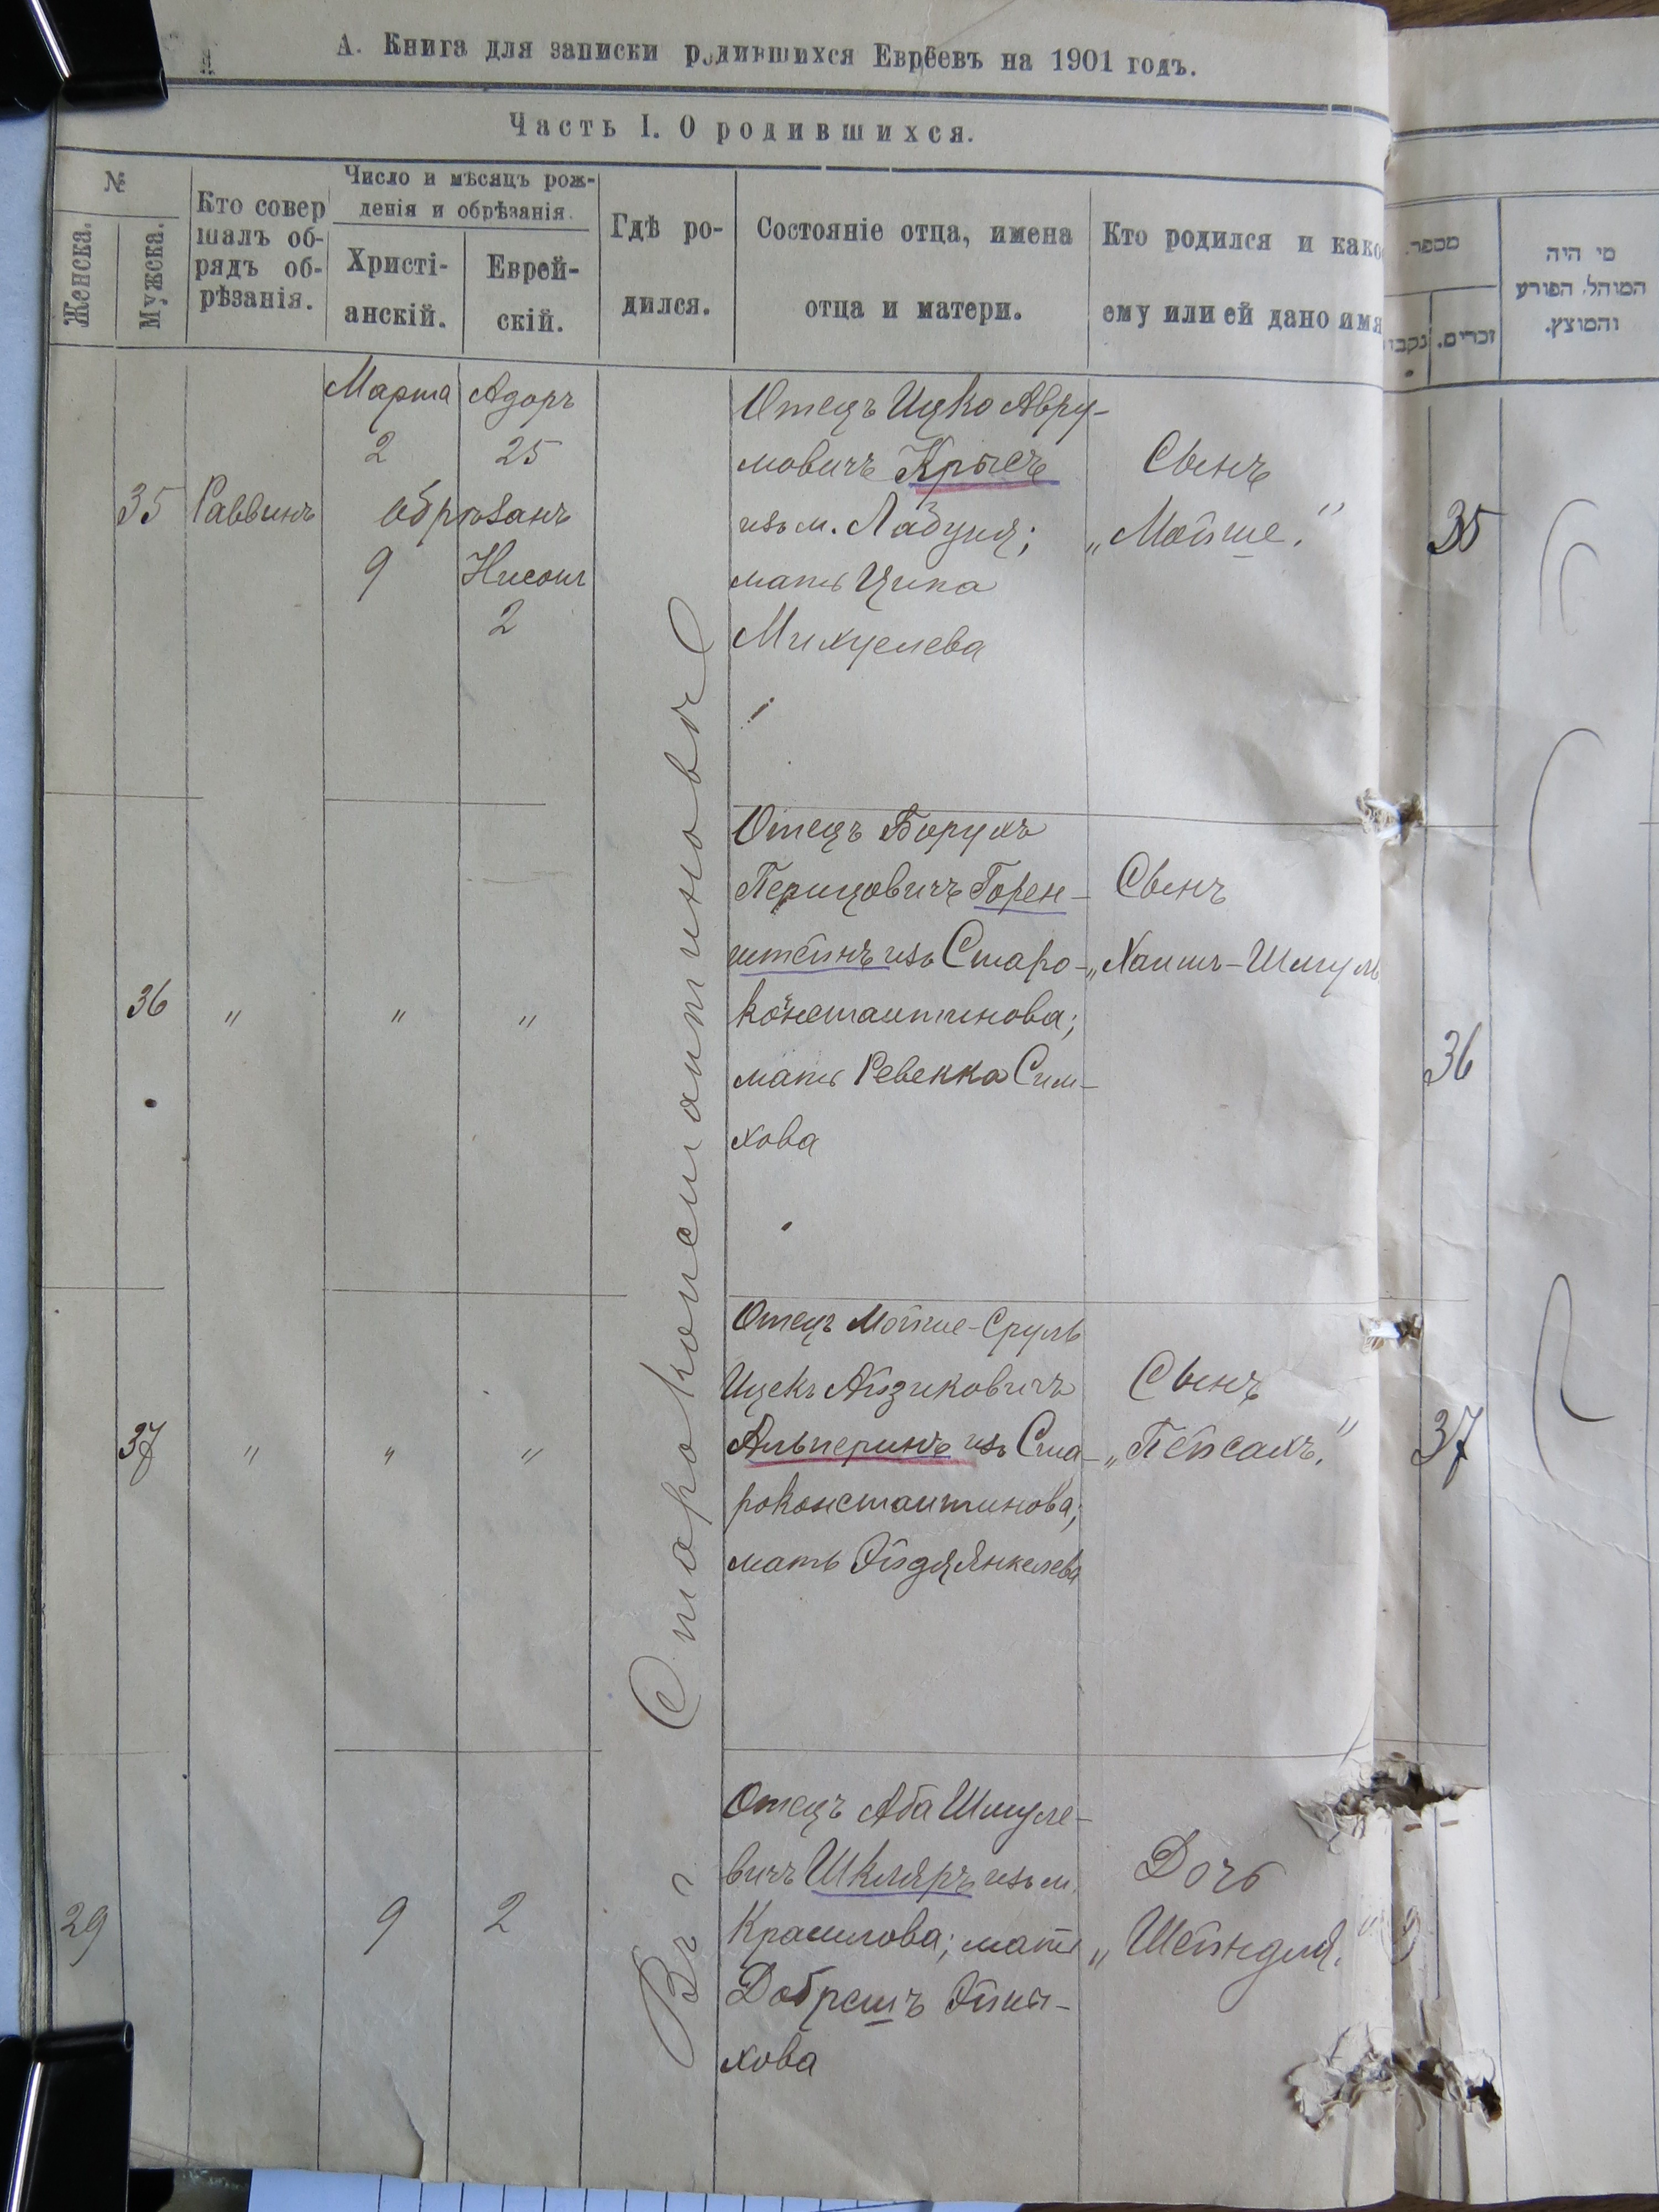 А. Книга для записки родившихся Евреевъ на 1901 годъ.
Часть I. О родившихся.
№
Женска.
Мужска.
Кто совер
шалъ об-
рядъ об-
рѣзанія.
Число и мѣсяцъ рож-
денія и обрѣзанія.
Христі-
анскій.
Еврей-
скій.
Гдѣ ро-
дился.
Состояніе отца, имена
отца и матери.
Кто родился и како
ему или ей дано имя
מספר.
זכרים.
נקבו
מי היה
המוהל, הפורע
והמוצץ.
35
Раввинъ
Марта
2
обрѣзанъ
9
Адоръ
25
Нисонъ
2
Въ г Староконстантиновѣ
Отецъ Ицко Авру-
мовичъ Крысъ
изъ м. Лабуня;
мать Ципа
Михуелева
Сынъ
„Мойше."
35
36
"
"
"
Отецъ Борухъ
Перицовичъ Горен-
штейнъ изъ Старо-
константинова;
мать Ревекка Сим-
хова
Сынъ
„Хаимъ-Шмуль
36
37
"
"
"
Отецъ Мойше-Сруль
Ицекъ Айзиковичъ
Альперинъ изъ Ста-
роконстантинова;
мать Эйдя Янкелева
Сынъ
„Пейсахъ."
37
29
9
2
Отецъ Аба Шмуле-
вичъ Шкляръ изъ м.
Красилова; мать
Добрешъ
хова
Дочь
„Шейндля."